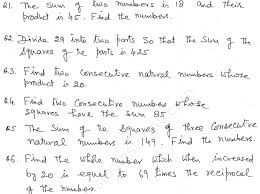 Q1. The Sum of two numbers is 18 and their
product is 45. Find the numbers.
Q2. Divide 29 into two parts So that the Sum of the
Squares of the parts is 425
Q3. Find two consecutive natural numbers whose
product is 20.
Q4. Find two Consecutive numbers whose
squares have the sum 85
Q5 The Sum of the Squares of three Consecutive
natural numbers is 149. Find the numbers.
Q6 Find the whole number which when increased
by 20 is equal to 69 times the reciprocal
of the number.